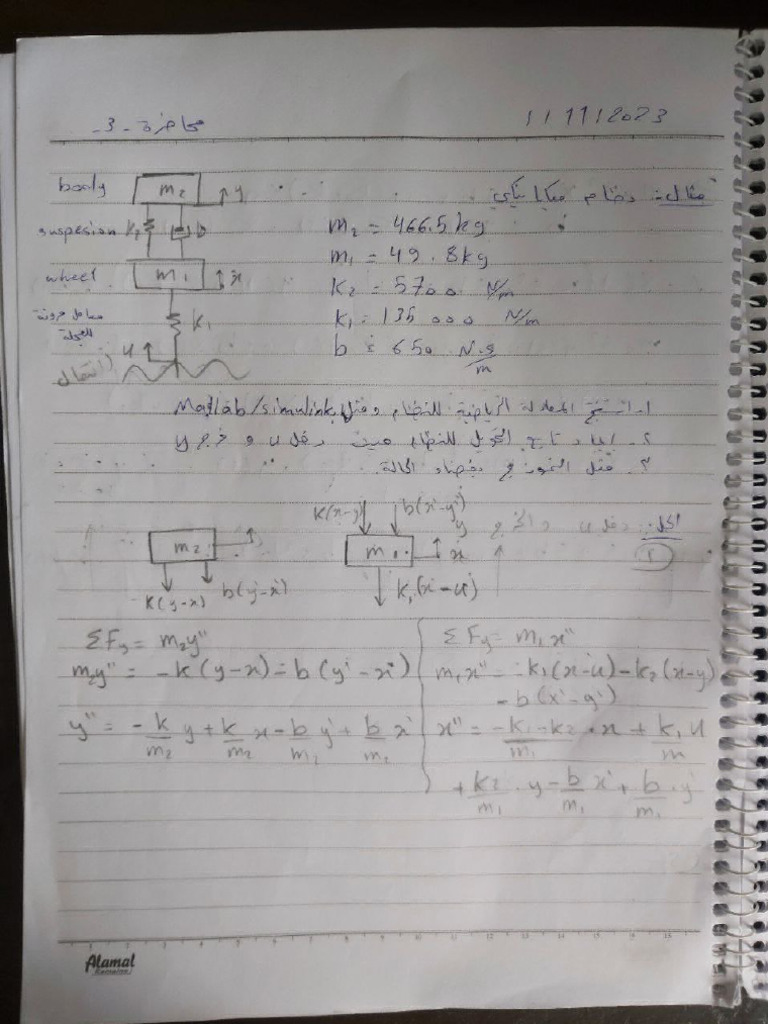 محاضرة -3-
11/11/2023
مثال: نظام ميكانيكي
body m₂ y
suspesion k₂ b
wheel m₁ x
معامل مرونة العجلة k₁
u
m₂ = 466.5 kg
m₁ = 49.8 kg
k₂ = 5700 N/m
k₁ = 135 000 N/m
b = 650 N.s/m
1- استنتج المعادلة الرياضية للنظام ومثل Matlab/simulink
2- ايجاد تابع التحويل للنظام حيث دخل u و خرج y
3- مثل النموذج بفضاء الحالة.
الحل: دخل u والخرج y
1
m₂
k(y-x) b(y˙-x˙)
k(x-y) b(x˙-y˙)
m₁ x
k₁(x-u)
ΣFy = m₂y¨
m₂y¨ = -k(y-x) - b(y˙-x˙)
y¨ = -k/m₂ y + k/m₂ x - b/m₂ y˙ + b/m₂ x˙
ΣFy = m₁x¨
m₁x¨ = -k₁(x-u) - k₂(x-y)
- b(x˙-y˙)
x¨ = -k₁-k₂/m₁ . x + k₁/m u
+ k₂/m₁ . y - b/m₁ x˙ + b/m₁ . y˙
Alamal